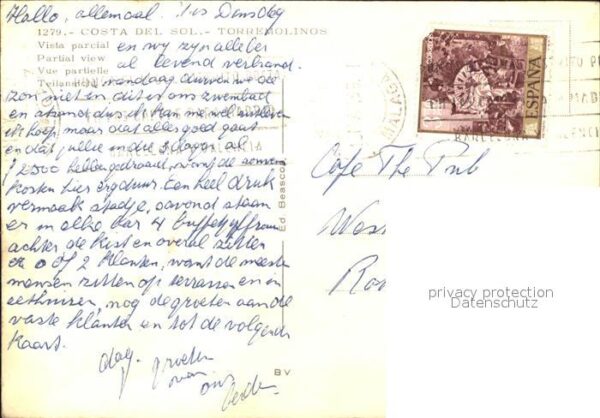 Hallo, allemaal. 't is Dinsdag
1279.- COSTA DEL SOL.- TORREMOLINOS
Vista parcial
en wij zijn allebei
Partial view
al levend verbrand.
Vue partielle
Teilansicht
vandaag durven we de
zon niet in, dit is ons zwembad
en strand dus je kan me wel
ik hoop maar dat alles goed gaat
en dat jullie in die 3 dagen al
ƒ 2500 hebben gedraaid, want de
kosten hier erg duur. Een heel druk
vermaak stadje, savond staan
er in elke bar 4 buffetjuffrouw
achter de kist en overal zitten
er 0 of 2 klanten, want de meeste
mensen zitten op terrassen en in
eethuizen, nog de groeten aan de
vaste klanten en tot de volgende
kaart.
dag.
groeten
van
ons
Ed Beascoa
BV
CORREOS
ESPAÑA
MALAGA
BARCELONA
Cafe The Pub
Wes
Ro
privacy protection
Datenschutz